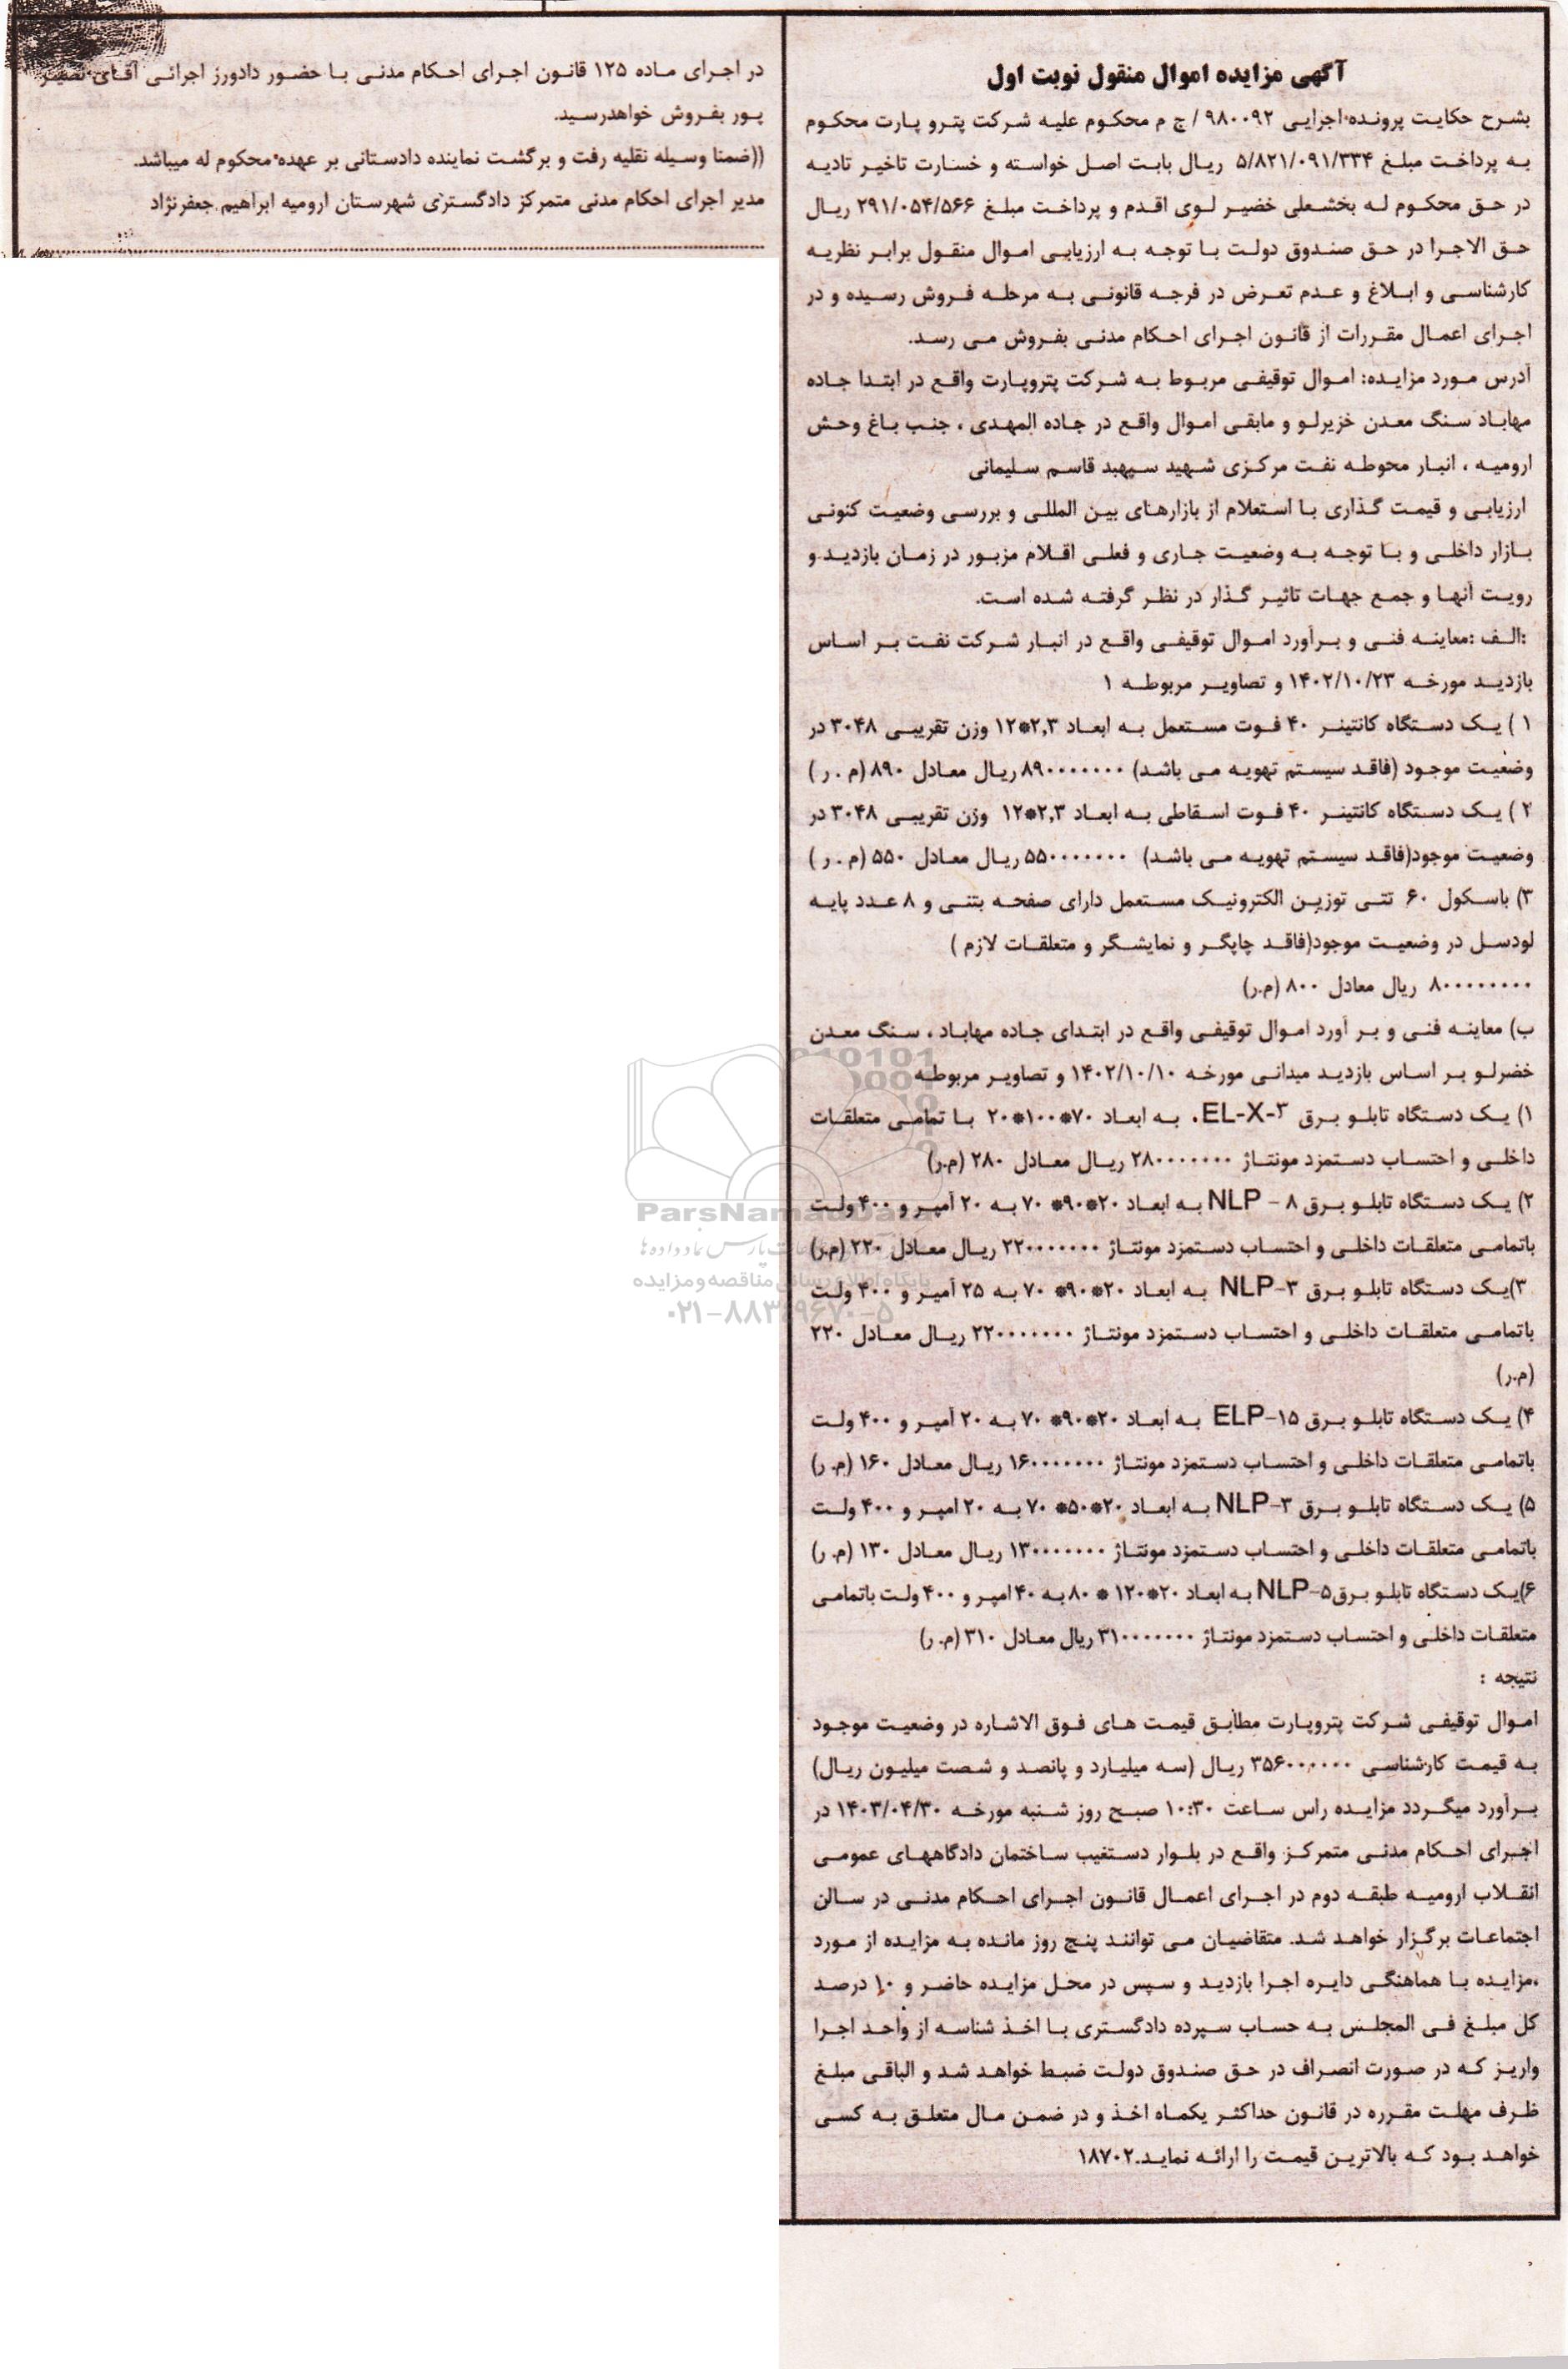 آگهی مزایده اموال منقول نوبت اول
بشرح حکایت پرونده اجرایی ۹۸۰۰۹۲ / ج م محکوم علیه شرکت پترو پارت محکوم
به پرداخت مبلغ ۵/۸۲۱/۰۹۱/۳۳۴ ریال بابت اصل خواسته و خسارت تاخیر تادیه
در حق محکوم له بخشعلی خضیر لوی اقدم و پرداخت مبلغ ۲۹۱/۰۵۴/۵۶۶ ریال
حق الاجرا در حق صندوق دولت با توجه به ارزیابی اموال منقول برابر نظریه
کارشناسی و ابلاغ و عدم تعرض در فرجه قانونی به مرحله فروش رسیده و در
اجرای اعمال مقررات از قانون اجرای احکام مدنی بفروش می رسد.
آدرس مورد مزایده: اموال توقیفی مربوط به شرکت پتروپارت واقع در ابتدا جاده
مهاباد سنگ معدن خزیرلو و مابقی اموال واقع در جاده المهدی ، جنب باغ وحش
ارومیه ، انبار محوطه نفت مرکزی شهید سپهبد قاسم سلیمانی
ارزیابی و قیمت گذاری با استعلام از بازارهای بین المللی و بررسی وضعیت کنونی
بازار داخلی و با توجه به وضعیت جاری و فعلی اقلام مزبور در زمان بازدید و
رویت آنها و جمع جهات تاثیر گذار در نظر گرفته شده است.
:الف :معاینه فنی و برآورد اموال توقیفی واقع در انبار شرکت نفت بر اساس
بازدید مورخه ۱۴۰۲/۱۰/۲۳ و تصاویر مربوطه ۱
۱ ) یک دستگاه کانتینر ۴۰ فوت مستعمل به ابعاد ۲,۳*۱۲ وزن تقریبی ۳۰۴۸ در
وضعیت موجود (فاقد سیستم تهویه می باشد) ۸۹۰۰۰۰۰۰۰ ریال معادل ۸۹۰ (م . ر )
۲ ) یک دستگاه کانتینر ۴۰ فوت اسقاطی به ابعاد ۲,۳*۱۲ وزن تقریبی ۳۰۴۸ در
وضعیت موجود(فاقد سیستم تهویه می باشد) ۵۵۰۰۰۰۰۰۰ ریال معادل ۵۵۰ (م . ر )
۳) باسکول ۶۰ تنی توزین الکترونیک مستعمل دارای صفحه بتنی و ۸ عدد پایه
لودسل در وضعیت موجود(فاقد چاپگر و نمایشگر و متعلقات لازم )
۸۰۰۰۰۰۰۰۰ ریال معادل ۸۰۰ (م.ر)
ب) معاینه فنی و بر آورد اموال توقیفی واقع در ابتدای جاده مهاباد ، سنگ معدن
خضرلو بر اساس بازدید میدانی مورخه ۱۴۰۲/۱۰/۱۰ و تصاویر مربوطه
۱) یک دستگاه تابلو برق EL-X-۳. به ابعاد ۷۰*۱۰۰*۲۰ با تمامی متعلقات
داخلی و احتساب دستمزد مونتاژ ۲۸۰۰۰۰۰۰۰ ریال معادل ۲۸۰ (م.ر)
۲) یک دستگاه تابلو برق NLP - ۸ به ابعاد ۲۰*۹۰* ۷۰ به ۲۰ آمپر و ۴۰۰ ولت
باتمامی متعلقات داخلی و احتساب دستمزد مونتاژ ۲۲۰۰۰۰۰۰۰ ریال معادل ۲۲۰ (م.ر)
۳)یک دستگاه تابلو برق NLP-۳ به ابعاد ۲۰*۹۰* ۷۰ به ۲۵ آمپر و ۴۰۰ ولت
باتمامی متعلقات داخلی و احتساب دستمزد مونتاژ ۲۲۰۰۰۰۰۰۰ ریال معادل ۲۲۰
(م.ر)
۴) یک دستگاه تابلو برق ELP-۱۵ به ابعاد ۲۰*۹۰* ۷۰ به ۲۰ آمپر و ۴۰۰ ولت
باتمامی متعلقات داخلی و احتساب دستمزد مونتاژ ۱۶۰۰۰۰۰۰۰ ریال معادل ۱۶۰ (م. ر)
۵) یک دستگاه تابلو برق NLP-۳ به ابعاد ۲۰*۵۰* ۷۰ به ۲۰ امپر و ۴۰۰ ولت
باتمامی متعلقات داخلی و احتساب دستمزد مونتاژ ۱۳۰۰۰۰۰۰۰ ریال معادل ۱۳۰ (م. ر)
۶)یک دستگاه تابلو برق NLP-۵ به ابعاد ۲۰*۱۲۰ * ۸۰ به ۴۰ امپر و ۴۰۰ ولت باتمامی
متعلقات داخلی و احتساب دستمزد مونتاژ ۳۱۰۰۰۰۰۰۰ ریال معادل ۳۱۰ (م. ر)
نتیجه :
اموال توقیفی شرکت پتروپارت مطابق قیمت های فوق الاشاره در وضعیت موجود
به قیمت کارشناسی ۳۵۶۰۰۰۰۰۰۰ ریال (سه میلیارد و پانصد و شصت میلیون ریال)
برآورد میگردد مزایده راس ساعت ۱۰:۳۰ صبح روز شنبه مورخه ۱۴۰۳/۰۴/۳۰ در
اجرای احکام مدنی متمرکز واقع در بلوار دستغیب ساختمان دادگاههای عمومی
انقلاب ارومیه طبقه دوم در اجرای اعمال قانون اجرای احکام مدنی در سالن
اجتماعات برگزار خواهد شد. متقاضیان می توانند پنج روز مانده به مزایده از مورد
مزایده با هماهنگی دایره اجرا بازدید و سپس در محل مزایده حاضر و ۱۰ درصد
کل مبلغ فی المجلس به حساب سپرده دادگستری با اخذ شناسه از واحد اجرا
واریز که در صورت انصراف در حق صندوق دولت ضبط خواهد شد و الباقی مبلغ
ظرف مهلت مقرره در قانون حداکثر یکماه اخذ و در ضمن مال متعلق به کسی
خواهد بود که بالاترین قیمت را ارائه نماید.۱۸۷۰۲
در اجرای ماده ۱۲۵ قانون اجرای احکام مدنی با حضور دادورز اجرائی آقای نصیر
پور بفروش خواهدرسید.
((ضمنا وسیله نقلیه رفت و برگشت نماینده دادستانی بر عهده محکوم له میباشد.
مدیر اجرای احکام مدنی متمرکز دادگستری شهرستان ارومیه ابراهیم جعفرنژاد
ParsNamadData
پارس نماد داده ها
پایگاه اطلاع رسانی مناقصه و مزایده
۰۲۱-۸۸۳۴۹۶۷۰-۵